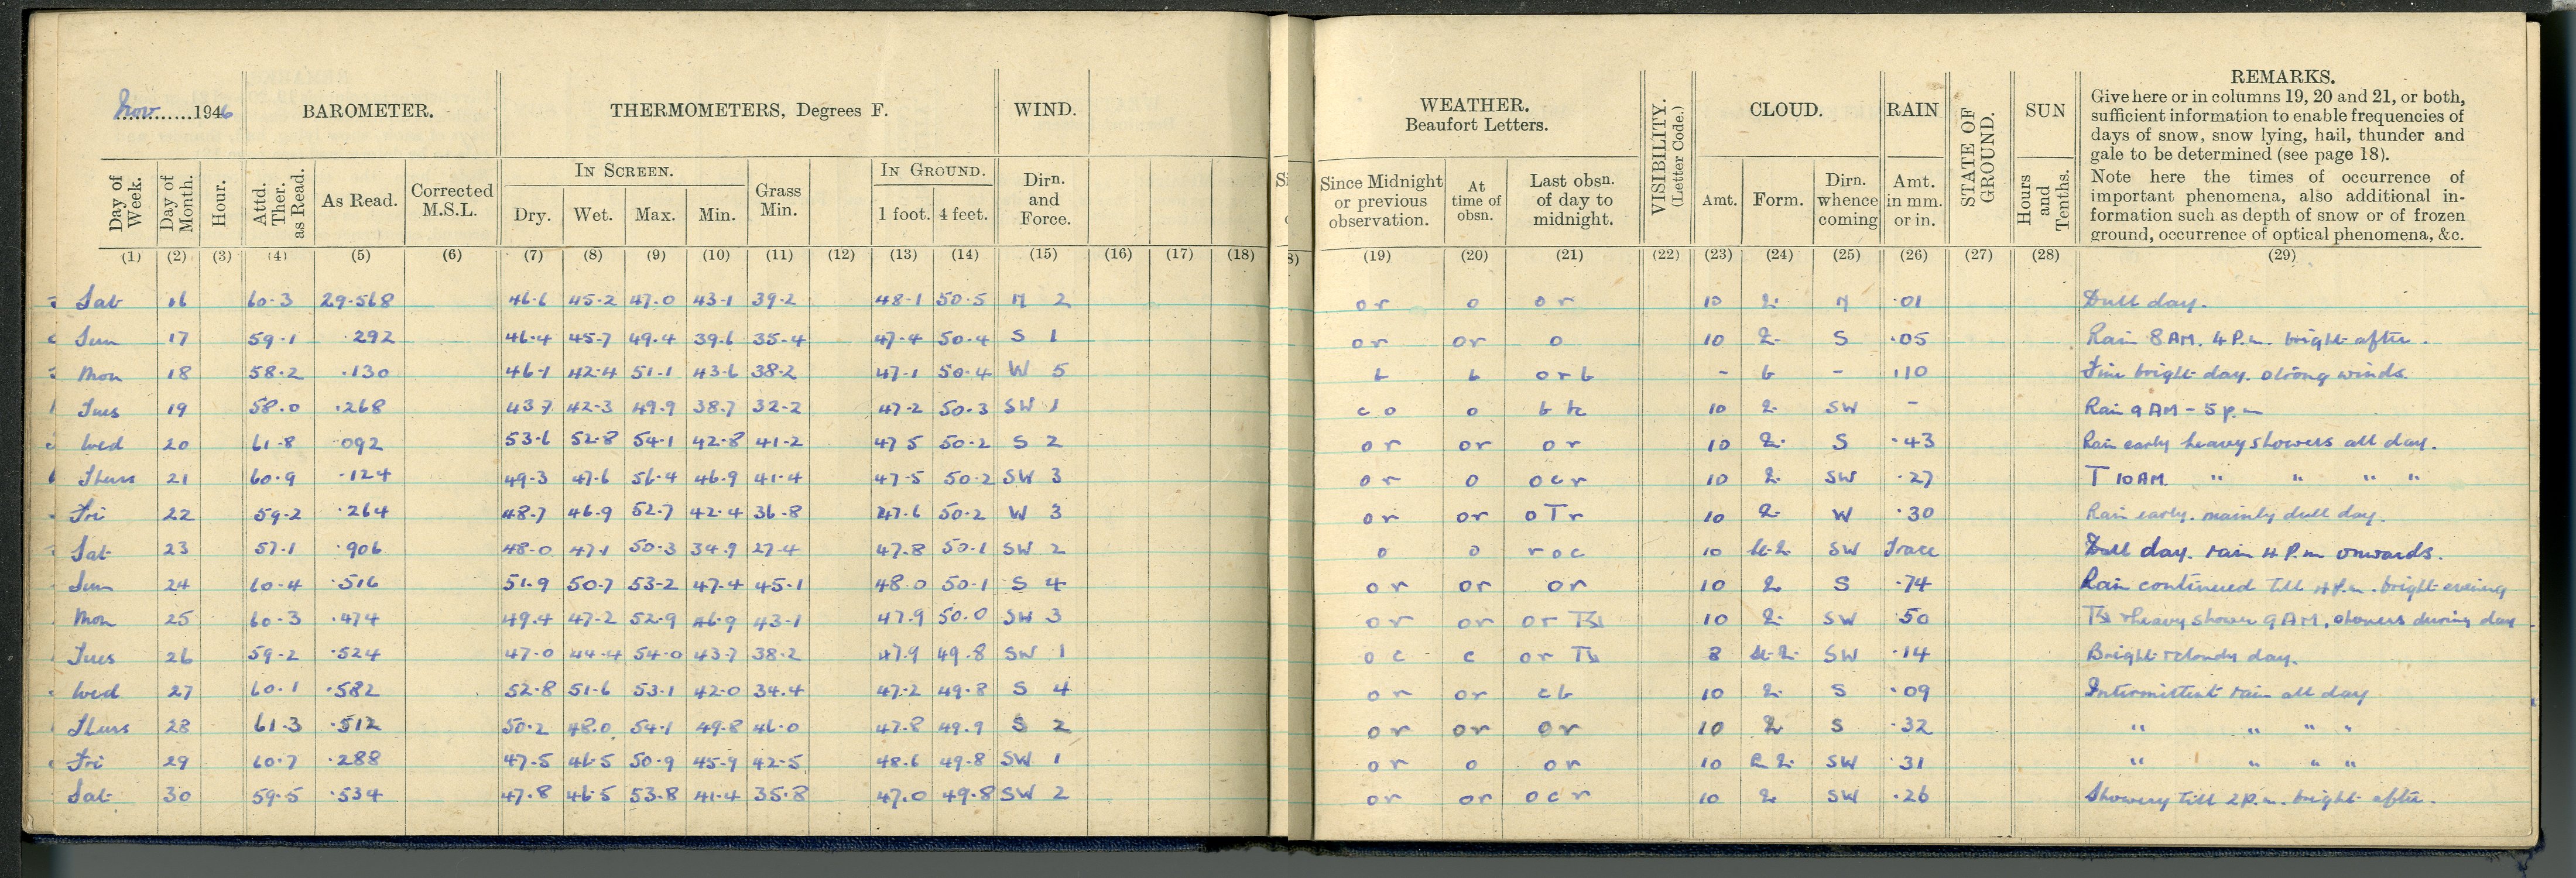 Nov 1946 BAROMETER. THERMOMETERS, Degrees F. WIND.
Day of Week. Day of Month. Hour. Attd. Ther. as Read. As Read. Corrected M.S.L. IN SCREEN. Dry. Wet. Max. Min. Grass Min. IN GROUND. 1 foot. 4 feet. Dirn. and Force.
(1) (2) (3) (4) (5) (6) (7) (8) (9) (10) (11) (12) (13) (14) (15) (16) (17) (18)
Sat 16 60.3 29.568 46.6 45.2 47.0 43.1 39.2 48.1 50.5 N 2
Sun 17 59.1 .292 46.4 45.7 49.4 39.6 35.4 47.4 50.4 S 1
Mon 18 58.2 .130 46.1 42.4 51.1 43.6 38.2 47.1 50.4 W 5
Tues 19 58.0 .268 43.7 42.3 49.9 38.7 32.2 47.2 50.3 SW 1
Wed 20 61.8 092 53.6 52.8 54.1 42.8 41.2 47 5 50.2 S 2
Thurs 21 60.9 .124 49.3 47.6 56.4 46.9 41.4 47.5 50.2 SW 3
Fri 22 59.2 .264 48.7 46.9 52.7 42.4 36.8 47.6 50.2 W 3
Sat 23 57.1 .906 48.0 47.1 50.3 34.9 27.4 47.8 50.1 SW 2
Sun 24 60.4 .516 51.9 50.7 53.2 47.4 45.1 48.0 50.1 S 4
Mon 25 60.3 .474 49.4 47.2 52.9 46.9 43.1 47.9 50.0 SW 3
Tues 26 59.2 .524 47.0 44.4 54.0 43.7 38.2 47.9 49.8 SW 1
Wed 27 60.1 .582 52.8 51.6 53.1 42.0 34.4 47.2 49.8 S 4
Thurs 28 61.3 .512 50.2 48.0 54.1 49.8 46.0 47.8 49.9 S 2
Fri 29 60.7 .288 47.5 46.5 50.9 45.9 42.5 48.6 49.8 SW 1
Sat 30 59.5 .534 47.8 46.5 53.8 41.4 35.8 47.0 49.8 SW 2
WEATHER. Beaufort Letters. VISIBILITY. (Letter Code.) CLOUD. RAIN STATE OF GROUND. SUN REMARKS.
Since Midnight or previous observation. At time of obsn. Last obsn. of day to midnight. Amt. Form. Dirn. whence coming Amt. in mm. or in. Hours and Tenths.
Give here or in columns 19, 20 and 21, or both,
sufficient information to enable frequencies of
days of snow, snow lying, hail, thunder and
gale to be determined (see page 18).
Note here the times of occurrence of
important phenomena, also additional in-
formation such as depth of snow or of frozen
ground, occurrence of optical phenomena, &c.
(19) (20) (21) (22) (23) (24) (25) (26) (27) (28) (29)
or o or 10 N .01 Dull day.
or or o 10 S .05 Rain 8 AM. 4 P.m. bright after.
b b orb - b - .10 Fine bright day. strong winds.
co o 10 SW - Rain 9 AM - 5 p.m
or or or 10 S .43 Rain early heavy showers all day.
or o ocr 10 SW .27 T 10 AM. " " " "
or or oTr 10 W .30 Rain early. mainly dull day.
o o roc 10 SW Trace Dull day. rain 4 P.m onwards.
or or or 10 S .74 Rain continued till 4 P.m. bright evening
or or or 10 SW .50 heavy shower 9 AM, showers during day
oc c or 8 SW .14 Bright & cloudy day.
or or cb 10 S .09 Intermittent rain all day
or or or 10 S .32 " " " "
or o or 10 SW .31 " " " "
or or ocr 10 SW .26 Showery till 2 P.m. bright after.